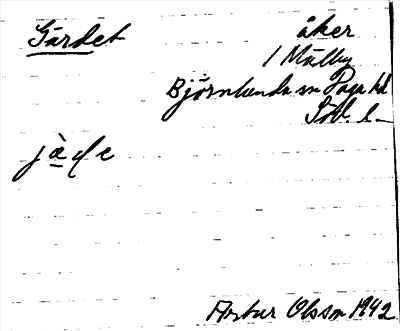 Gärdet åker
1 Mälby
Björnlunda sn Daga hd
Söd. l.
jàḷe
Artur Olsson 1942